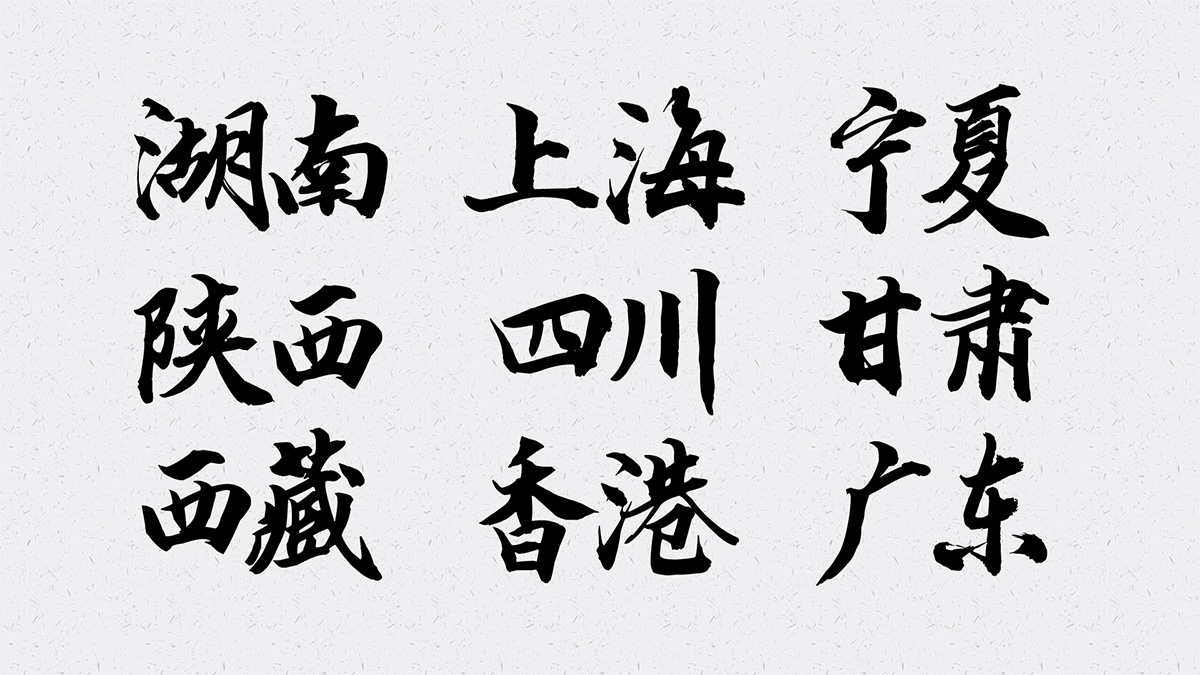 湖南 上海 宁夏
陕西 四川 甘肃
西藏 香港 广东